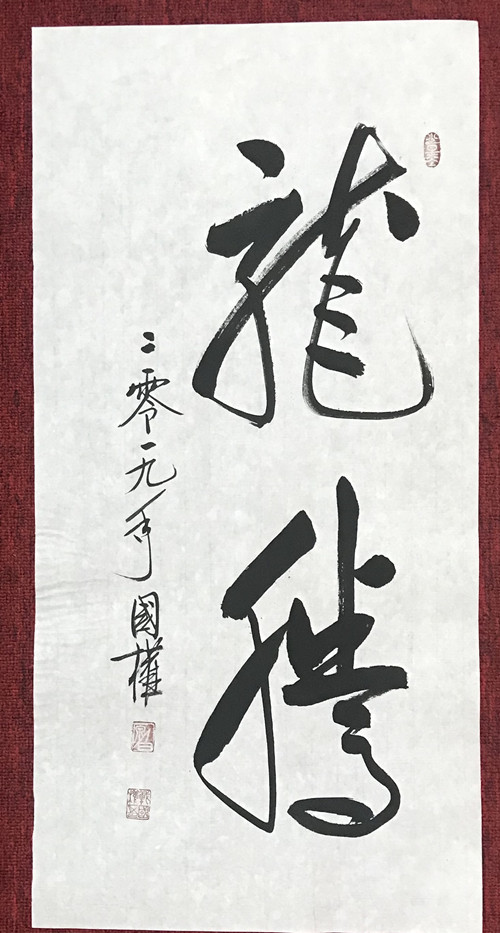 龍騰
二零一九年 國權